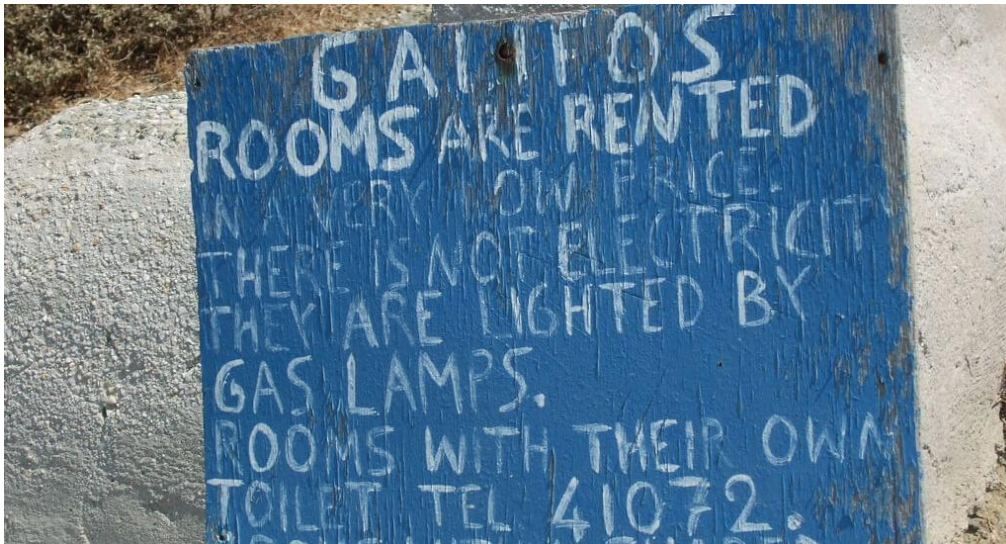 ROOMS ARE RENTED
IN A VERY LOW PRICE.
THERE IS NOT ELECTRICITY
THEY ARE LIGHTED BY
GAS LAMPS.
ROOMS WITH THEIR OWN
TOILET TEL 41072.